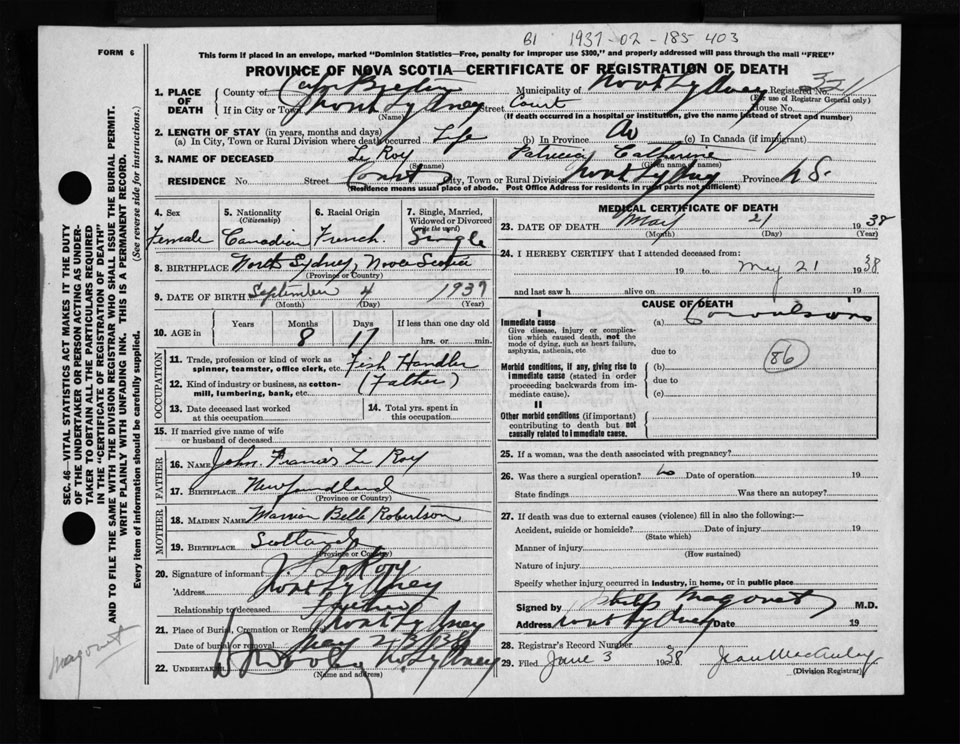 B1 1937-02-185-403
FORM 6
This form if placed in an envelope, marked "Dominion Statistics—Free, penalty for improper use $300," and properly addressed will pass through the mail "FREE"
PROVINCE OF NOVA SCOTIA—CERTIFICATE OF REGISTRATION OF DEATH
1. PLACE OF DEATH County of Cape Breton Municipality of North Sydney Registered No.
(For use of Registrar General only)
If in City or Town North Sydney Street Court House No.
(Name) (If death occurred in a hospital or institution, give the name instead of street and number)
2. LENGTH OF STAY (in years, months and days)
(a) In City, Town or Rural Division where death occurred Life (b) In Province (c) In Canada (if immigrant)
3. NAME OF DECEASED Le Roy Patricia Catherine
(Surname) (Given name or names)
RESIDENCE No. Street Court City, Town or Rural Division North Sydney Province N S.
(Residence means usual place of abode. Post Office Address for residents in rural parts not sufficient)
4. Sex Female
5. Nationality (Citizenship) Canadian
6. Racial Origin French.
7. Single, Married, Widowed or Divorced (write the word) Single
8. BIRTHPLACE North Sydney, Nova Scotia
(Province or Country)
9. DATE OF BIRTH September 4 1937
(Month) (Day) (Year)
10. AGE in Years Months Days If less than one day old
8 17 hrs. or min.
OCCUPATION
11. Trade, profession or kind of work as spinner, teamster, office clerk, etc. Fish Handler
12. Kind of industry or business, as cotton-mill, lumbering, bank, etc. (Father)
13. Date deceased last worked at this occupation
14. Total yrs. spent in this occupation
15. If married give name of wife or husband of deceased
FATHER
16. NAME John Francis Le Roy
17. BIRTHPLACE Newfoundland
(Province or Country)
MOTHER
18. MAIDEN NAME Marion Bell Robertson
19. BIRTHPLACE Scotland
(Province or Country)
20. Signature of informant J. F. LeRoy
Address North Sydney
Relationship to deceased Father
21. Place of Burial, Cremation or Removal North Sydney
Date of burial or removal May 23 1938
22. UNDERTAKER No. Sydney
(Name and address)
MEDICAL CERTIFICATE OF DEATH
23. DATE OF DEATH May 21 1938
(Month) (Day) (Year)
24. I HEREBY CERTIFY that I attended deceased from:
19 to May 21 1938
and last saw h alive on 19
CAUSE OF DEATH
I
Immediate cause (a) Convulsions
Give disease, injury or complication which caused death, not the mode of dying, such as heart failure, asphyxia, asthenia, etc.
due to
86
Morbid conditions, if any, giving rise to immediate cause (stated in order proceeding backwards from immediate cause). (b)
due to
(c)
II
Other morbid conditions (if important) contributing to death but not causally related to immediate cause.
25. If a woman, was the death associated with pregnancy?
26. Was there a surgical operation? No Date of operation 19
State findings Was there an autopsy?
27. If death was due to external causes (violence) fill in also the following:—
Accident, suicide or homicide? Date of injury 19
(State which)
Manner of injury
(How sustained)
Nature of injury
Specify whether injury occurred in industry, in home, or in public place
Signed by Magonet M.D.
Address North Sydney Date 19
28. Registrar's Record Number
29. Filed June 3 1938 Jean MacAulay
(Division Registrar)
SEC. 46 - VITAL STATISTICS ACT MAKES IT THE DUTY
OF THE UNDERTAKER OR PERSON ACTING AS UNDER-
TAKER TO OBTAIN ALL THE PARTICULARS REQUIRED
IN THE "CERTIFICATE OF REGISTRATION OF DEATH"
AND TO FILE THE SAME WITH THE DIVISION REGISTRAR WHO SHALL ISSUE THE BURIAL PERMIT.
WRITE PLAINLY WITH UNFADING INK. THIS IS A PERMANENT RECORD.
Every item of information should be carefully supplied. (See reverse side for instructions.)
Magonet